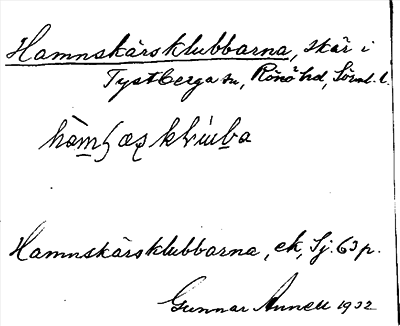 Hamnskärsklubbarna, skär i
Tystberga sn, Rönö hd, Södml. l.
Hamnskärsklubbarna, ek, Sj. 63 p.
Gunnar Annell 1932